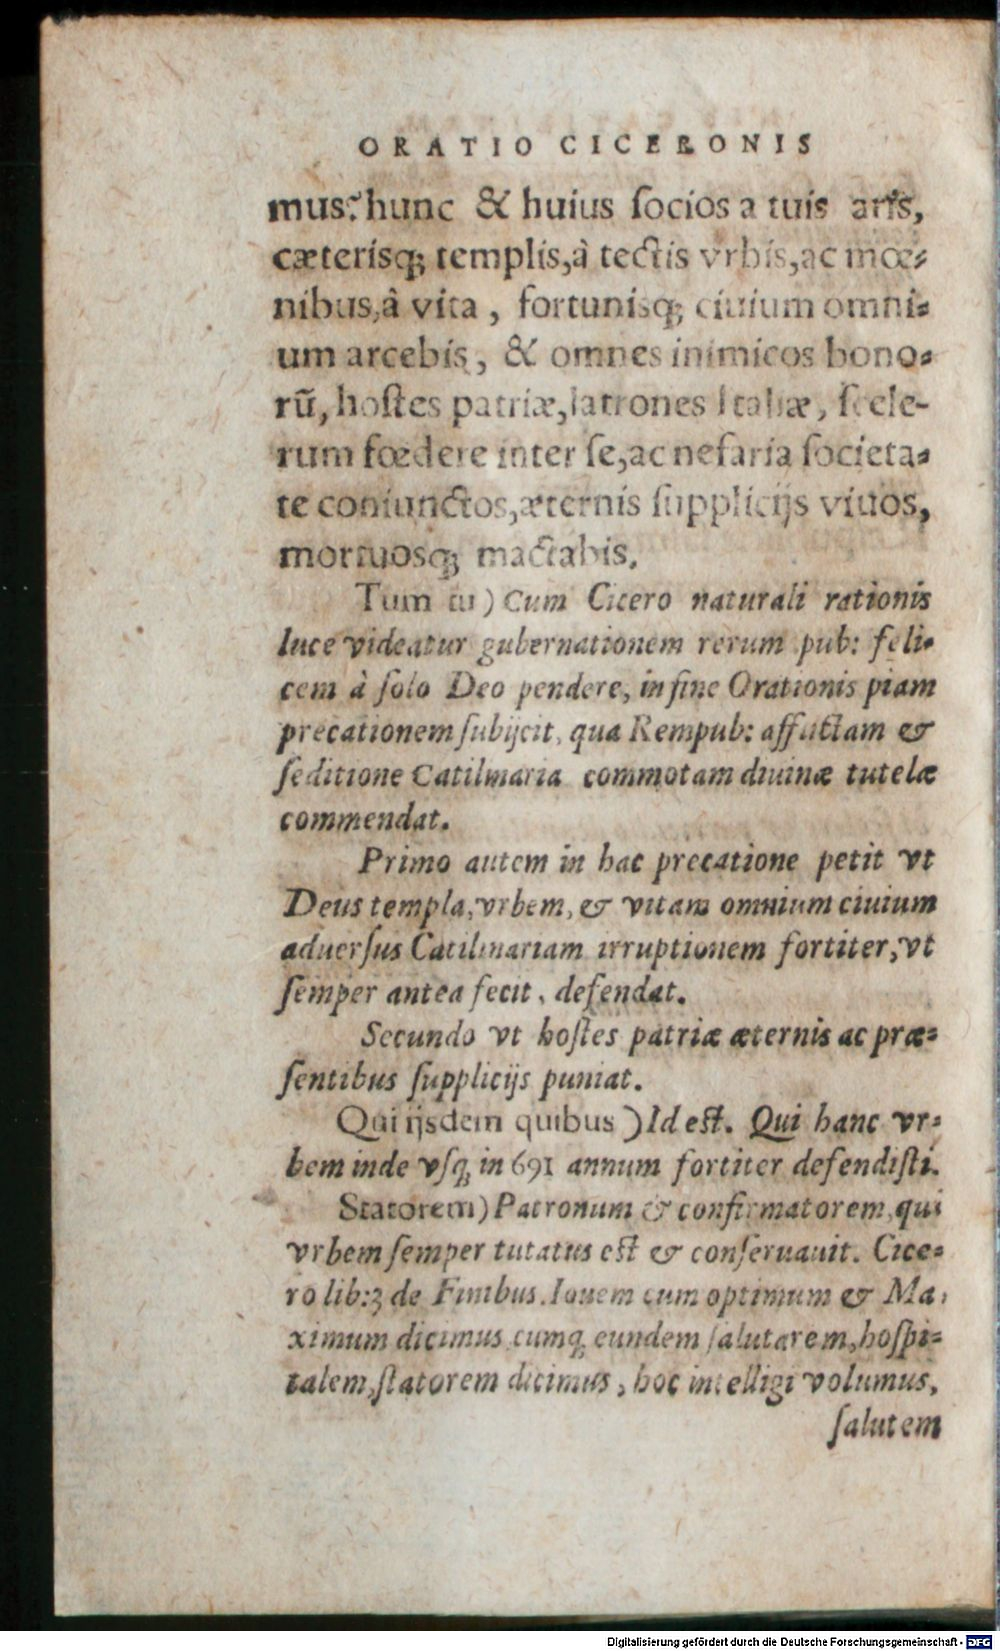 ORATIO CICERONIS
mus: hunc & huius ſocios a tuis aris,
cæterisq́; templis, à tectis vrbis, ac mœ-
nibus, â vita, fortunisq́; ciuium omni-
um arcebis, & omnes inimicos bono-
rũ, hoſtes patriæ, latrones Italiæ, ſcele-
rum fœdere inter ſe, ac nefaria ſocieta-
te coniunctos, æternis ſupplicijs viuos,
mortuosq́; mactabis.
Tum tu) Cum Cicero naturali rationis
luce videatur gubernationem rerum pub: feli-
cem à ſolo Deo pendere, in fine Orationis piam
precationem ſubijcit, qua Rempub: afflictam &
ſeditione Catilinaria commotam diuinæ tutelæ
commendat.
Primo autem in hac precatione petit vt
Deus templa, vrbem, & vitam omnium ciuium
aduerſus Catilinariam irruptionem fortiter, vt
ſemper antea fecit, defendat.
Secundo vt hoſtes patriæ æternis ac præ-
ſentibus ſupplicijs puniat.
Qui ijsdem quibus) Id eſt. Qui hanc vr-
bem inde vſq́; in 691 annum fortiter defendiſti.
Statorem) Patronum & confirmatorem, qui
vrbem ſemper tutatus eſt & conſeruauit. Cice-
ro lib: 3 de Finibus. Iouem cum optimum & Ma-
ximum dicimus cumq́; eundem ſalutarem, hoſpi-
talem, ſtatorem dicimus, hoc intelligi volumus,
ſalutem
Digitalisierung gefördert durch die Deutsche Forschungsgemeinschaft - DFG